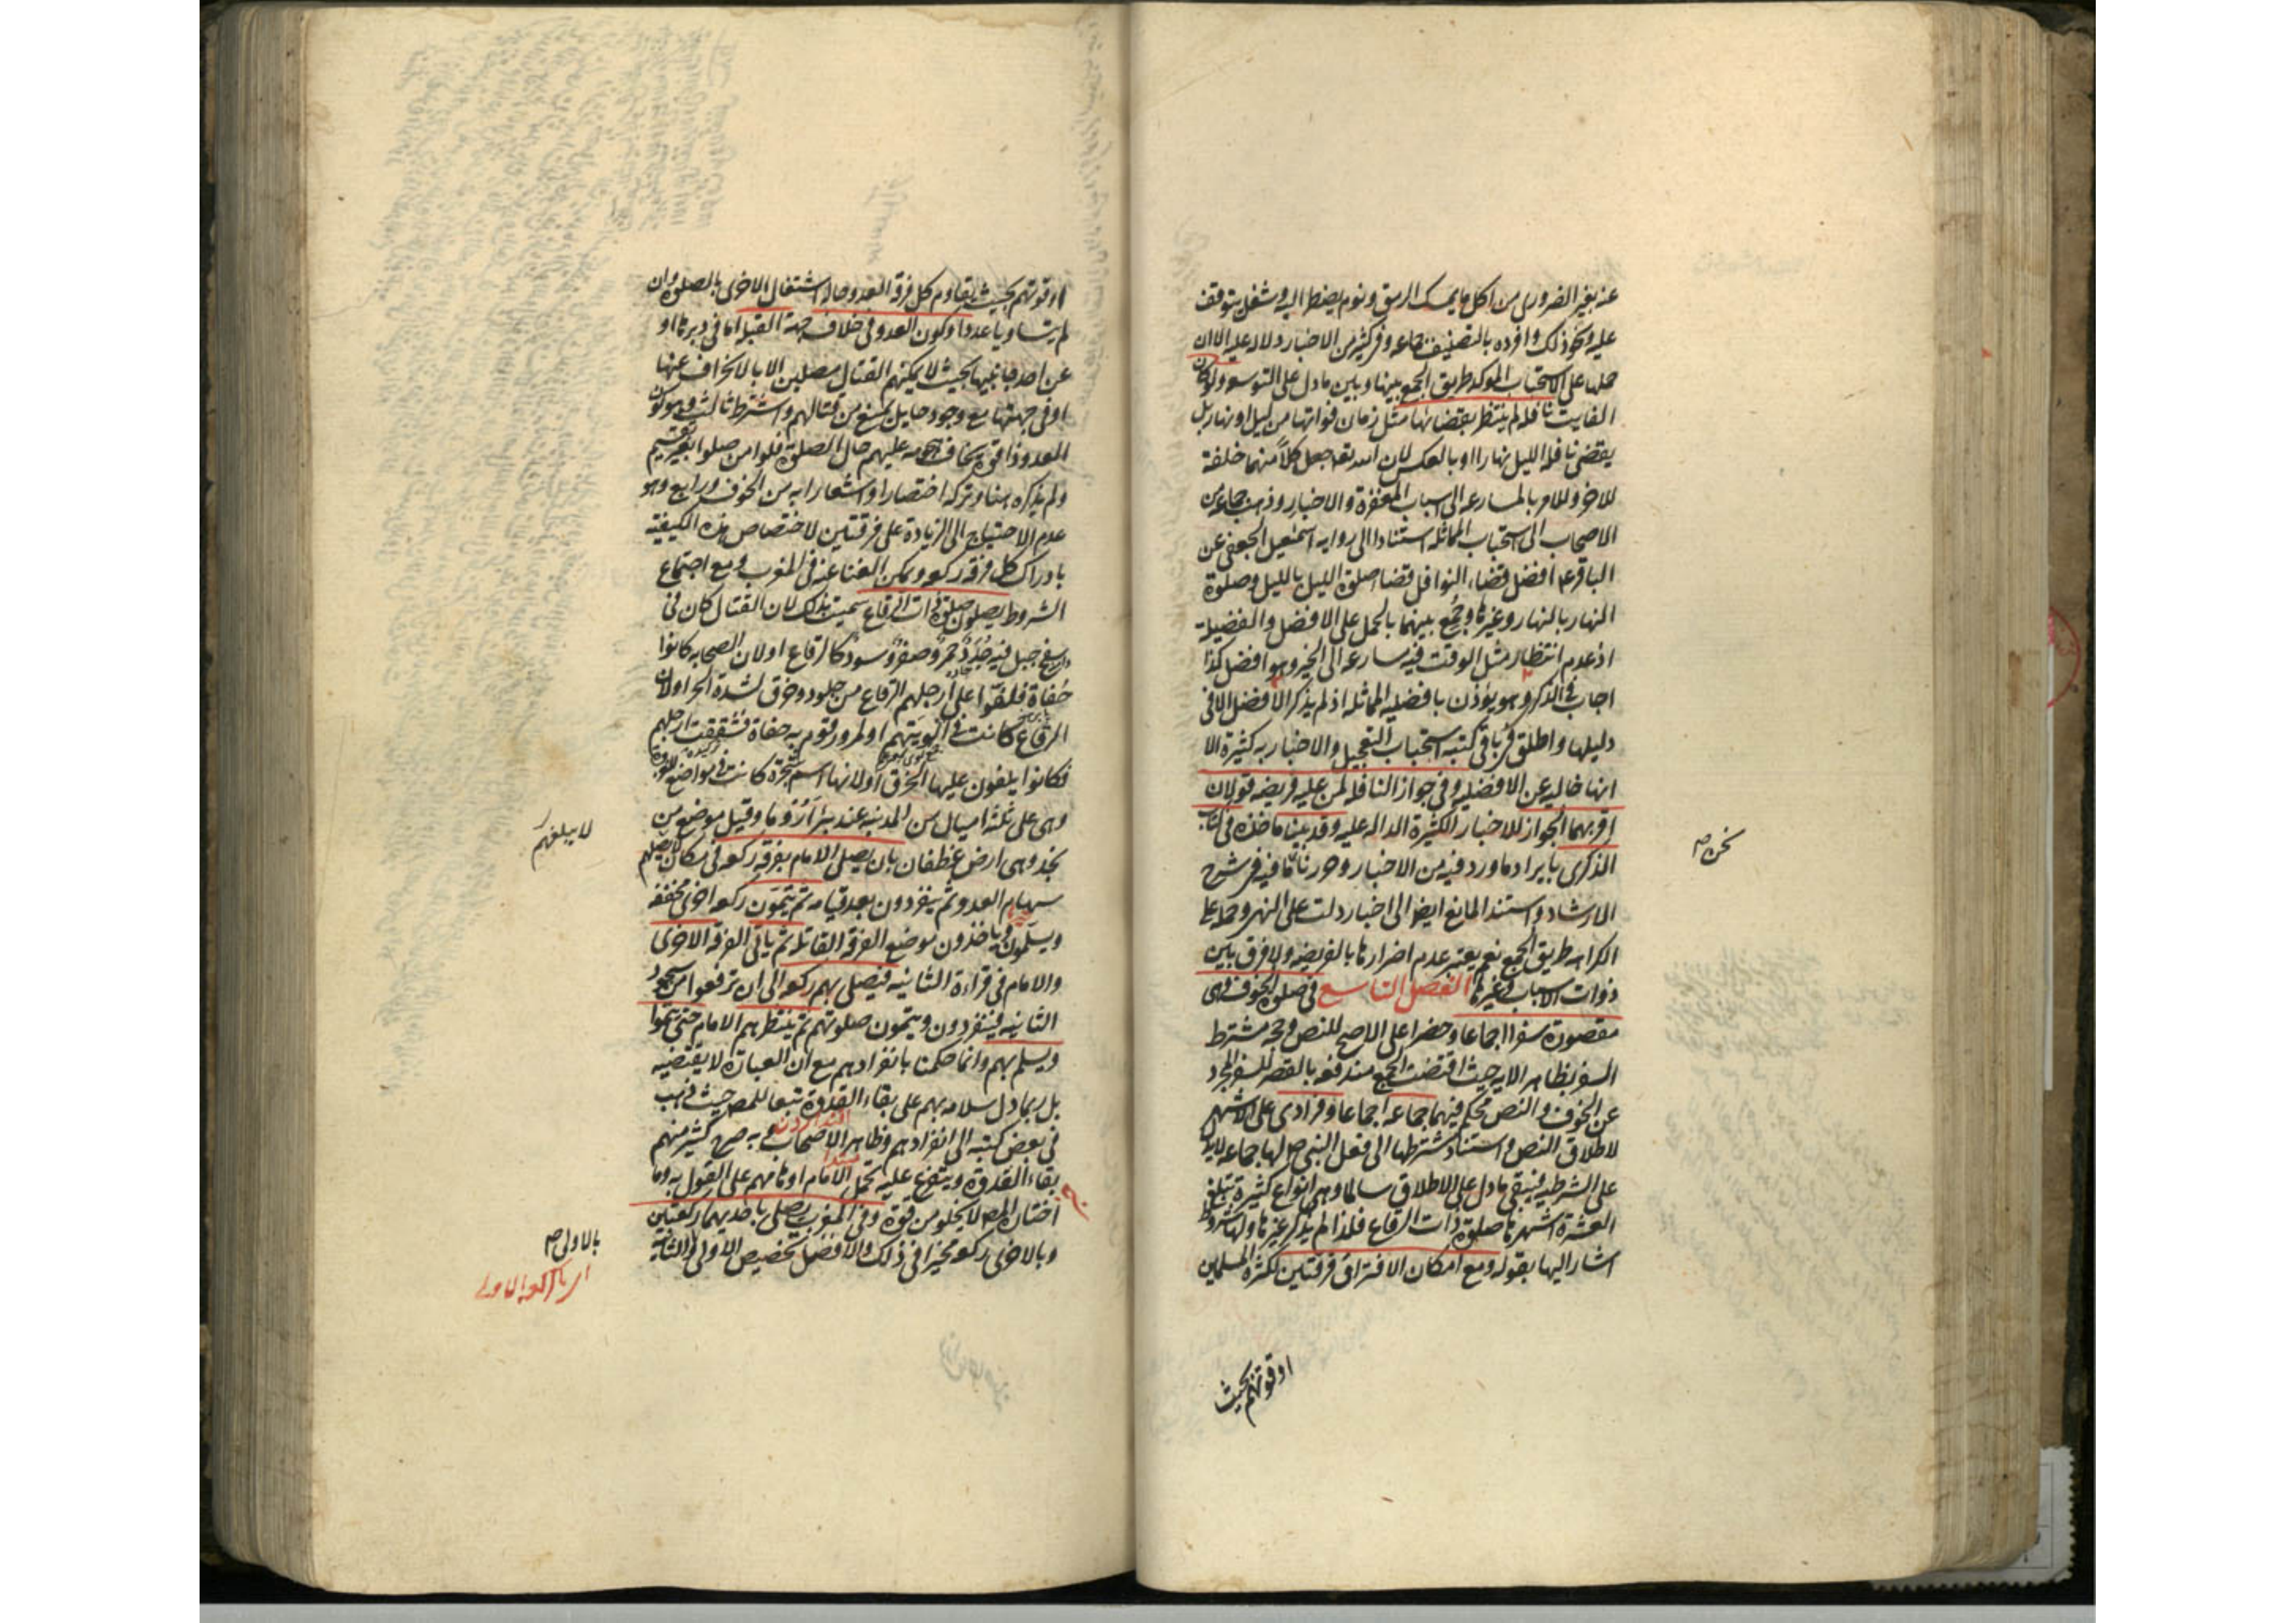 عنه بغير الضروري من اكل ما يمسك الرمق ونوم يضطر اليه وشغل يتوقف
عليه ونحو ذلك وافرده بالتصنيف جماعة وفي كثير من الاخبار دلالة عليه الا ان
حملها على الاستحباب المؤكد طريق الجمع بينها وبين ما دل على التوسعة ولو كان
الفايت نافلة لم ينتظر بقضائها مثل زمان فواتها من ليل او نهار بل
يقضي نافلة الليل نهارا او بالعكس لان الله تعه جعل كلاً منهما خلفة
للاخر وللامر بالمسارعة الى اسباب المغفرة والاخبار وذهب جماعة من
الاصحاب الى استحباب المماثلة استنادا الى رواية اسمعيل الجعفي عن
الباقر ع افضل قضاء النوافل قضاء صلوة الليل بالليل وصلوة
النهار بالنهار وغيرها وجُمع بينهما بالحمل على الافضل والفضيلة
اذ عدم انتظار مثل الوقت فيه مسارعة الى الخير وهو افضل كذا
اجاب في الذكرى وهو يؤذن بافضلية المماثلة اذ لم يذكر الافضل الا في
دليلها واطلق في باقي كتبه استحباب التعجيل والاخبار به كثيرة الا
انها خالية عن الافضلية وفي جواز النافلة لمن عليه فريضة قولان
اقربهما الجواز للاخبار الكثيرة الدالة عليه وقد بينا ماخذه في كتاب
الذكرى بايراد ما ورد فيه من الاخبار وحررنا ما فيه في شرح
الارشاد واستند المانع ايضا الى اخبار دلت على النهي وحمله على
الكراهة طريق الجمع نعم يعتبر عدم اضرارها بالفريضة ولا فرق بين
ذوات الاسباب وغيرها الفصل التاسع في صلوة الخوف وهى
مقصورة سفرا اجماعا وحضرا على الاصح للنص وحجة مشترط
السفر بظاهر الاية حيث اقتضت الجمع مندفعة بالقصر للسفر المجرد
عن الخوف والنص محكم فيهما جماعة اجماعا وفرادى على الاشهر
لاطلاق النص واستناد مشترطها الى فعل النبي ص لها جماعة لا يدل
على الشرطية فيبقى ما دل على الاطلاق سالما وهي انواع كثيرة تبلغ
العشرة اشهرها صلوة ذات الرقاع فلذا لم يذكر غيرها ولها شروط
اشار اليها بقوله ومع امكان الافتراق فرقتين لكثرة المسلمين
نحن ص
او قوتهم بحيث
او قوتهم بحيث يقاوم كل فرقة العدو حالة اشتغال الاخرى بالصلوة وان
لم يتساويا عددا وكون العدو في خلاف جهة القبلة اما في دبرها او
عن احد جانبيها بحيث لا يمكنهم القتال مصلين الا بالانحراف عنها
او في جهتها مع وجود حايل يمنع من قتالهم واشترط ثالث وهو كون
العدو ذا قوة يخاف هجومه عليهم حال الصلوة فلو امن صلوا بغير تقسيم
ولم يذكره هنا وتركه اختصارا او اشعارا به من الخوف ورابع وهو
عدم الاحتياج الى الزيادة على فرقتين لاختصاص هذه الكيفية
بادراك كل فرقة ركعة ويمكن الغنا عنه في المغرب ومع اجتماع
الشروط يصلون صلوة ذات الرقاع سميت بذلك لان القتال كان في
سفح جبل فيه جُدَد حمر وصفر وسود كالرقاع او لان الصحابة كانوا
حُفاة فلفّوا على ارجلهم الرقاع من جلود وخرق لشدة الحر او لان
الرقاع كانت في الويتهم او لمرور قوم به حفاة فتشققت ارجلهم
فكانوا يلفون عليها الخرق او لانها اسم شجرة كانت في موضع الغزوة
وهى على ثلثة اميال من المدينة عند بئر اَرُوما وقيل موضع من
نجد وهى ارض غطفان بان يصلي الامام بفرقة ركعة في مكان لا يصلهم
سهام العدو ثم ينفردون بعد قيامه ثم يتمون ركعة اخرى مخففة
ويسلمون وياخذون موضع الفرقة المقاتلة ثم ياتي الفرقة الاخرى
والامام في قراءة الثانية فيصلي بهم ركعة الى ان يرفعوا من سجود
الثانية فينفردون ويتمون صلوتهم ثم ينتظرهم الامام حتى يتموا
ويسلم بهم وانما حكمنا بانفرادهم مع ان العبارة لا يقتضيه
بل ربما دل سلامه بهم على بقاء القدوة تبعا للمص حيث ذهب
في بعض كتبه الى انفرادهم وظاهر الاصحاب وبه صرح كثير منهم
بقاء القدوة ويتفرع عليه تحمل الامام اوهامهم على القول به وما
اختاره المص لا يخلو من قوة وفي المغرب يصلي باحديهما ركعتين
وبالاخرى ركعة مخيرا في ذلك والافضل تخصيص الاولى والثانية
لا يبلغهم
بالاولى ص